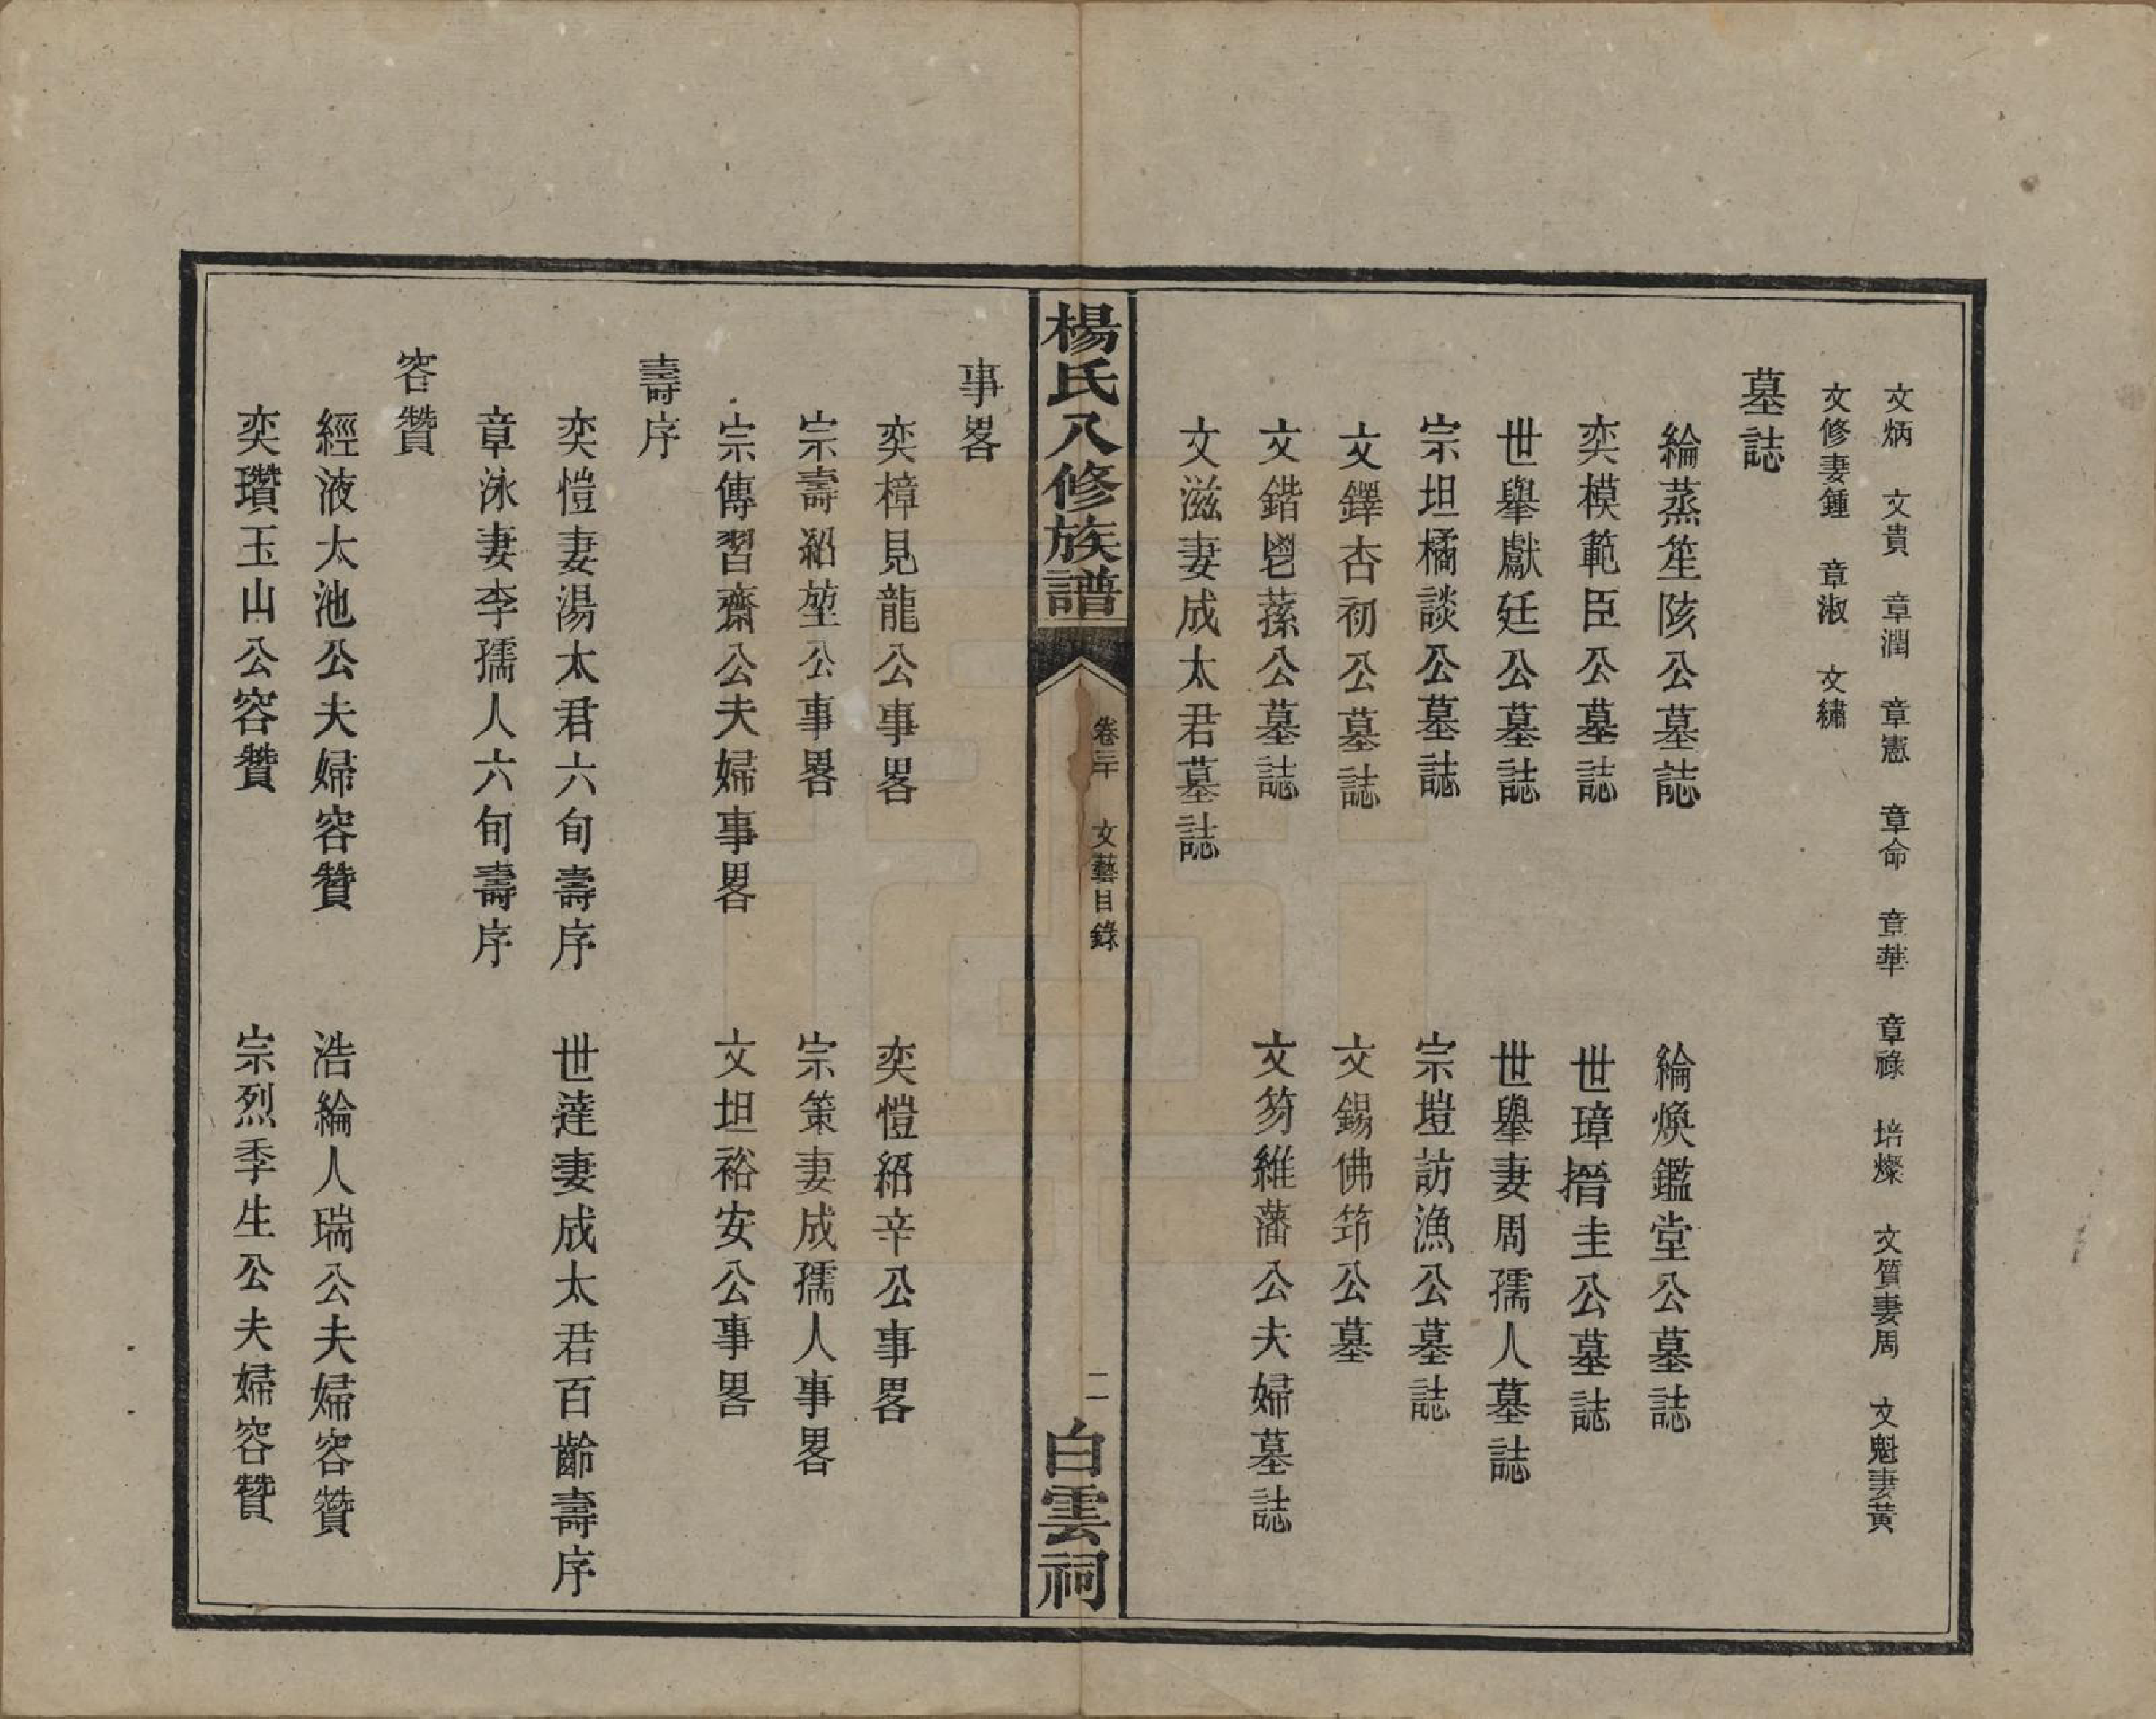 文炳　文貴　章潤　章憲　章命　章華　章祿　培燦　文質妻周　文魁妻黃
文修妻鍾　章淑　文繡
墓誌
綸蒸笙陔公墓誌　綸煥鑑堂公墓誌
奕模範臣公墓誌　世璋搢圭公墓誌
世舉獻廷公墓誌　世舉妻周孺人墓誌
宗坦橘談公墓誌　宗塏訪漁公墓誌
文鐸杏初公墓誌　文錫佛笻公墓
文鍇鬯蓀公墓誌　文芴維藩公夫婦墓誌
文滋妻成太君墓誌
楊氏八修族譜　卷三十　文藝目錄　二　白雲祠
事畧
奕樟見龍公事畧　奕愷紹辛公事畧
宗壽紹堃公事畧　宗策妻成孺人事畧
宗傳習齋公夫婦事畧　文坦裕安公事畧
壽序
奕愷妻湯太君六旬壽序　世達妻成太君百齡壽序
章泳妻李孺人六旬壽序
容贊
經液太池公夫婦容贊　浩綸人瑞公夫婦容贊
奕瓚玉山公容贊　宗烈季生公夫婦容贊